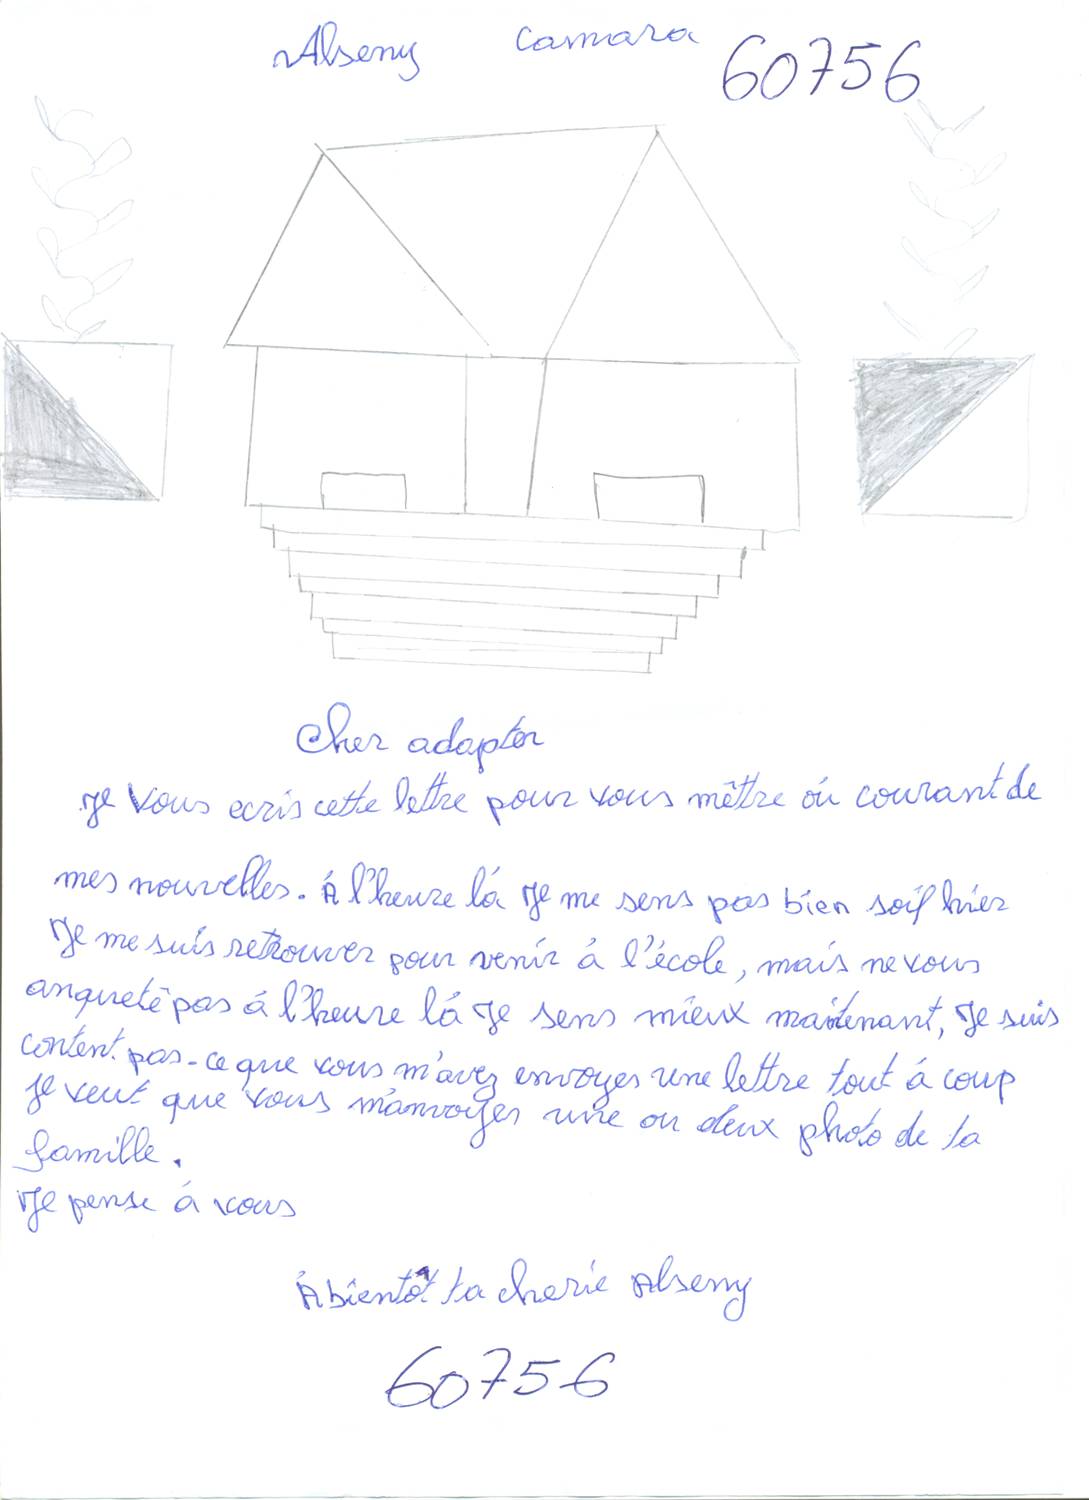 Alseny Camara 60756
Cher adapter
Je Vous ecris cette lettre pour vous mêttre oú courant de
mes nouvelles. Á l'heure lá Je me sens pas bien soif hier
Je me suis retrouver pour venir à l'école, mais ne vous
anquetê pas á l'heure lá Je sens mieux maintenant, Je suis
content pas-ce que vous m'avez envoyes une lettre tout á coup
Je veut que vous m'anvoyes une ou deux photo de ta
famille.
Je pense á vous
Á bientôt ta cherie Alseny
60756